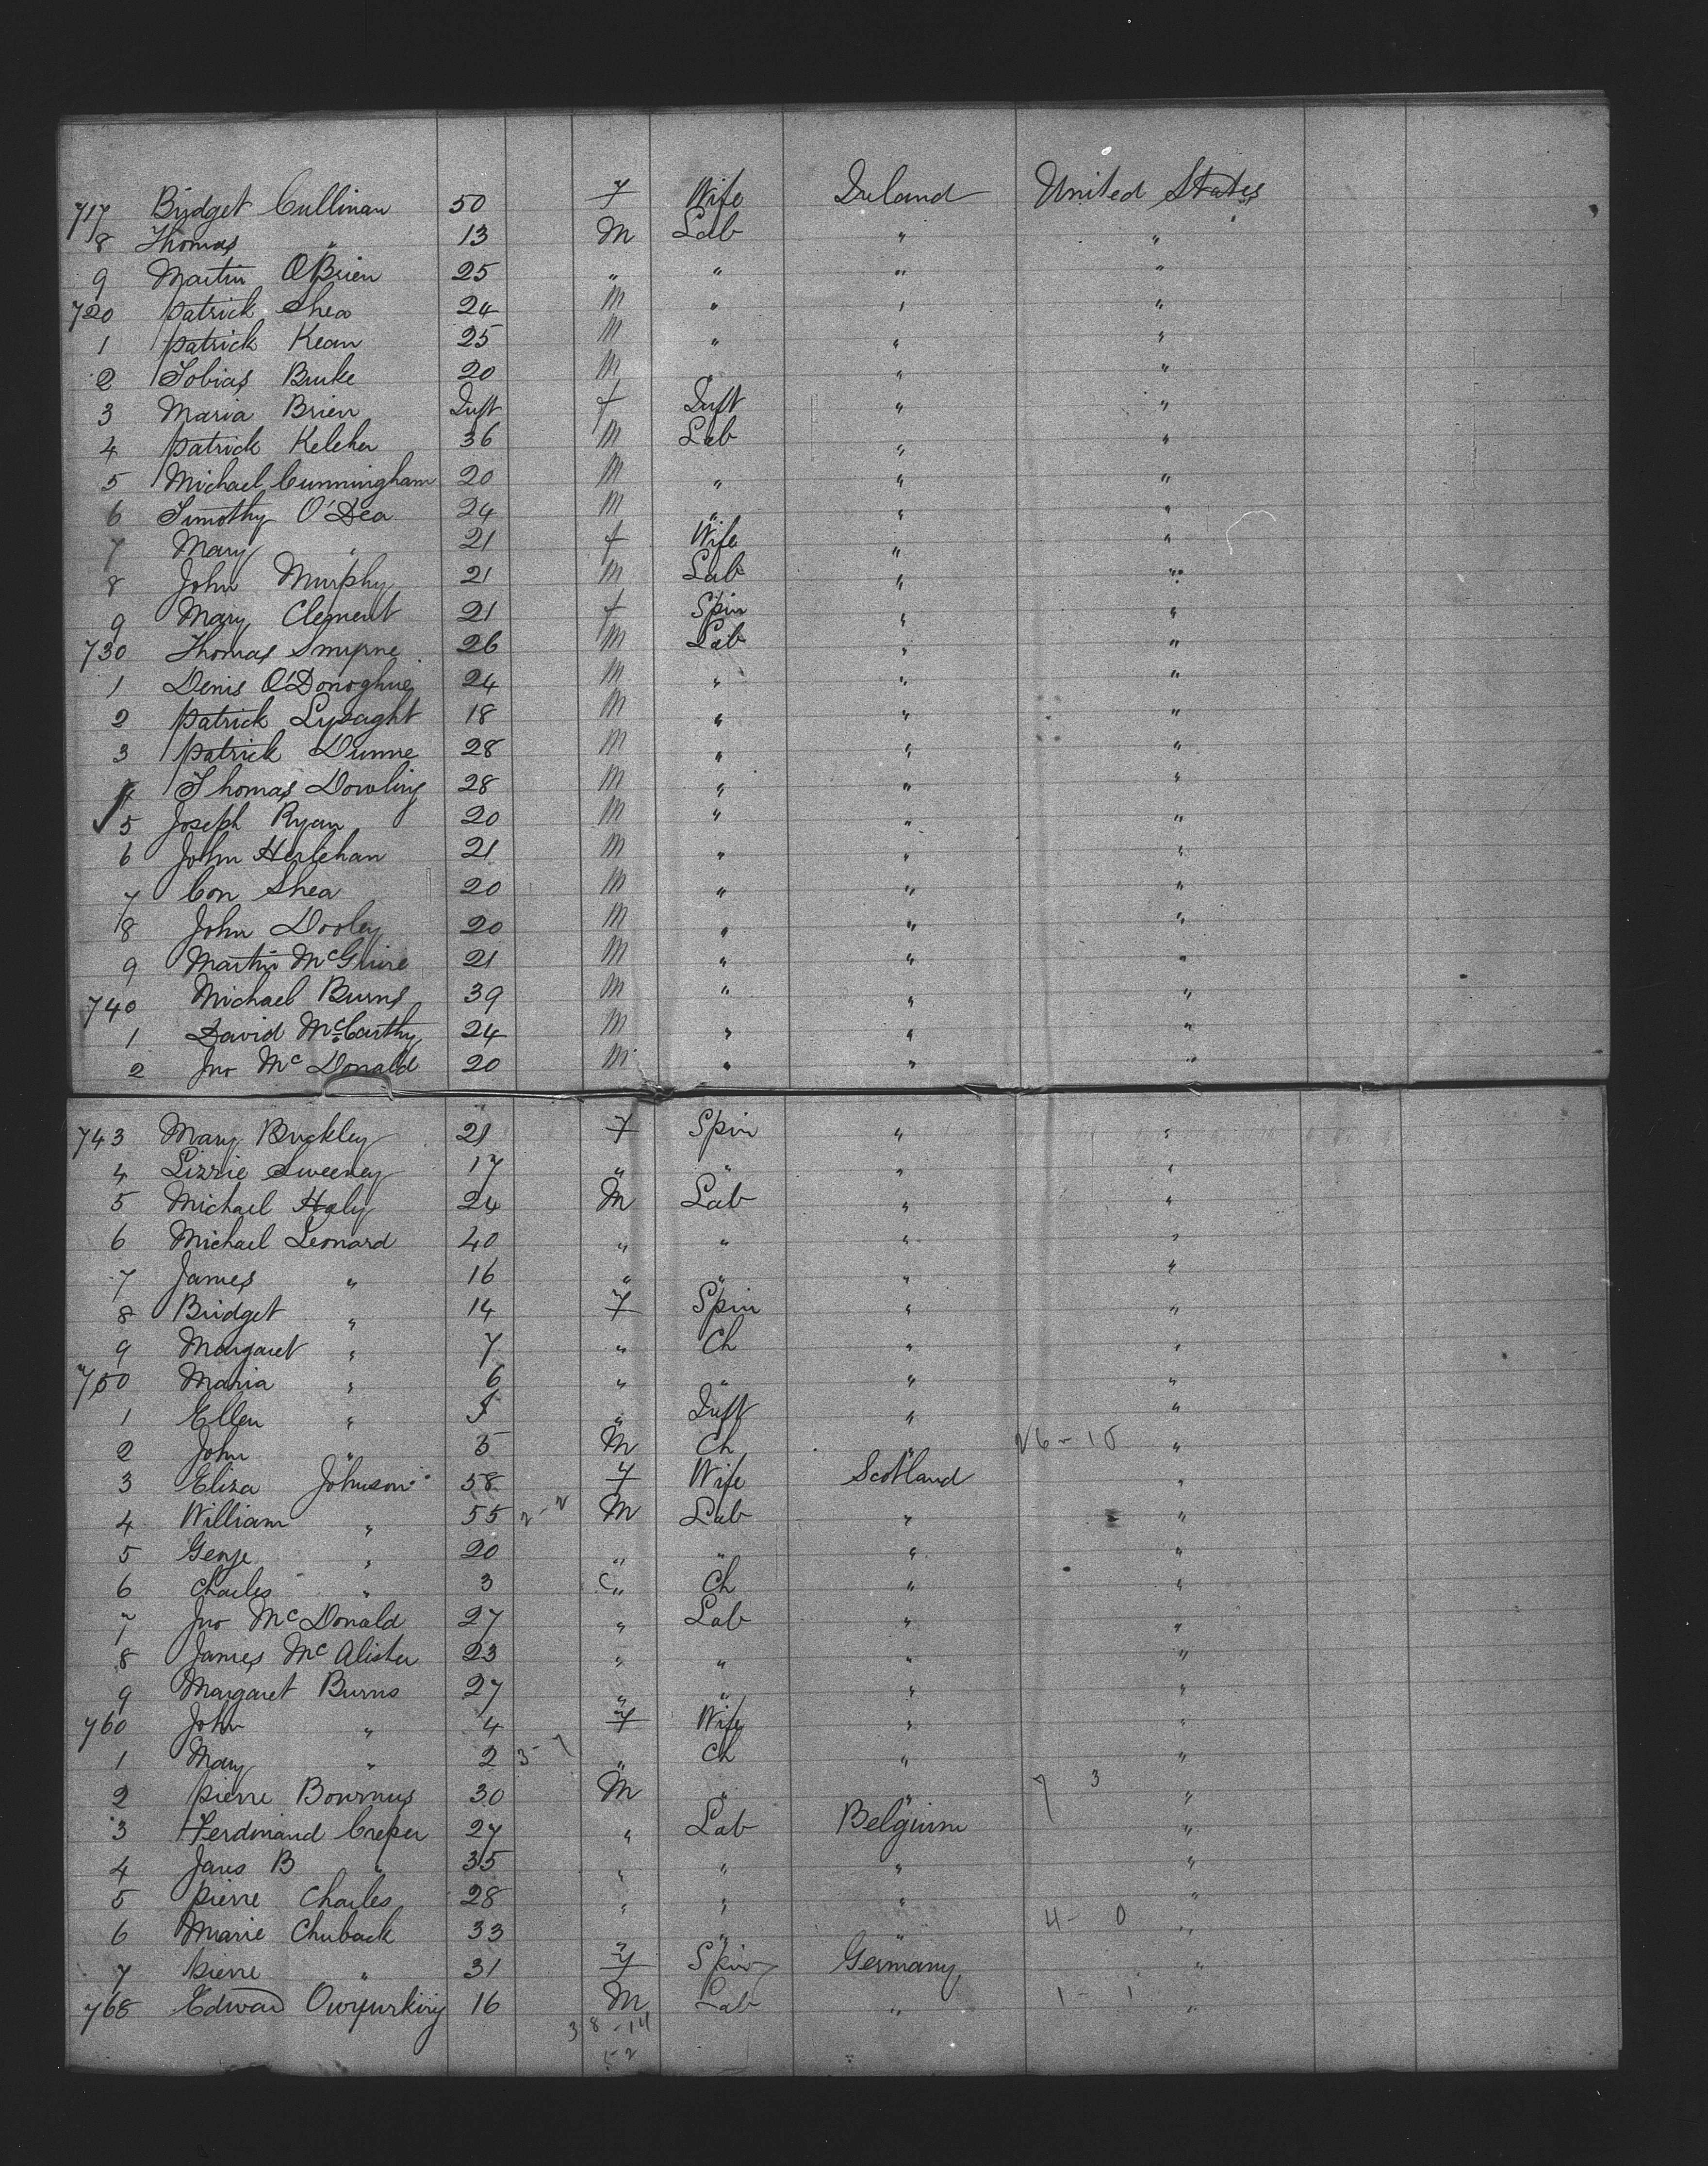 717 Bridget Cullinan 50 f Wife Ireland United States
8 Thomas " 13 M Lab " "
9 Martin O'Brien 25 " " " "
720 Patrick Shea 24 M " " "
1 Patrick Kean 25 M " " "
2 Tobias Burke 20 M " " "
3 Maria Brien Inft f Inft " "
4 Patrick Keleher 36 M Lab " "
5 Michael Cunningham 20 M " " "
6 Timothy O'Dea 24 M " " "
7 Mary " 21 f Wife " "
8 John Murphy 21 M Lab " "
9 Mary Clement 21 f Spin " "
730 Thomas Smyrne 26 M Lab " "
1 Denis O'Donoghue 24 M " " "
2 Patrick Lysaght 18 M " " "
3 Patrick Dunne 28 M " " "
4 Thomas Dowling 28 M " " "
5 Joseph Ryan 20 M " " "
6 John Herlehan 21 M " " "
7 Con Shea 20 M " " "
8 John Dooley 20 M " " "
9 Martin McGuire 21 M " " "
740 Michael Burns 39 M " " "
1 David McCarthy 24 M " " "
2 Jno McDonald 20 M " " "
743 Mary Buckley 21 f Spin " "
4 Lizzie Sweeney 17 " " " "
5 Michael Haly 24 M Lab " "
6 Michael Leonard 40 " " " "
7 James " 16 " " " "
8 Bridget " 14 f Spin " "
9 Margaret " 7 " Ch " "
750 Maria " 6 " " " "
1 Ellen " " Inft " "
2 John " 5 M Ch " 26-15 "
3 Eliza Johnson 58 f Wife Scotland "
4 William " 55 2-2 M Lab " "
5 George " 20 " " " "
6 Charles " 3 " Ch " "
7 Jno McDonald 27 " Lab " "
8 James McAlister 23 " " " "
9 Margaret Burns 27 " " " "
760 John " 4 f Wife " "
1 Mary " 2 3-7 " Ch " "
2 Pierre Bournus 30 M " " 7 3 "
3 Ferdinand Creper 27 " Lab Belgium "
4 Jans B " 35 " " " "
5 Pierre Charles 28 " " " "
6 Marie Chuback 33 " " 4-0 "
7 Pierre " 31 f Spin Germany "
768 Edward 16 M Lab " 1-1 "
38-14
52